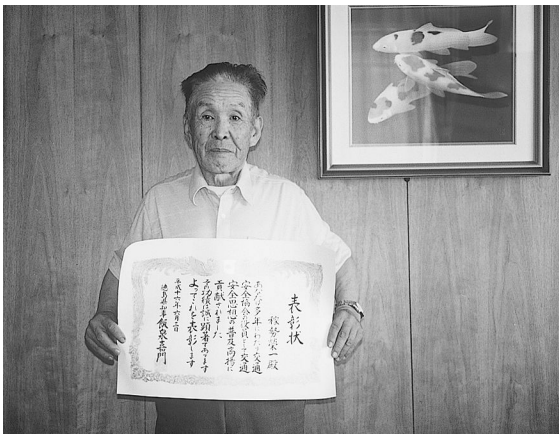 表彰状
一殿
あなたは多年にわたり交通
安全協会役員として交通
安全思想の普及高揚に
貢献されました
その功績は誠に顕著であります
よってこれを表彰します
平成十六年六月
徳島県知事 飯泉嘉門